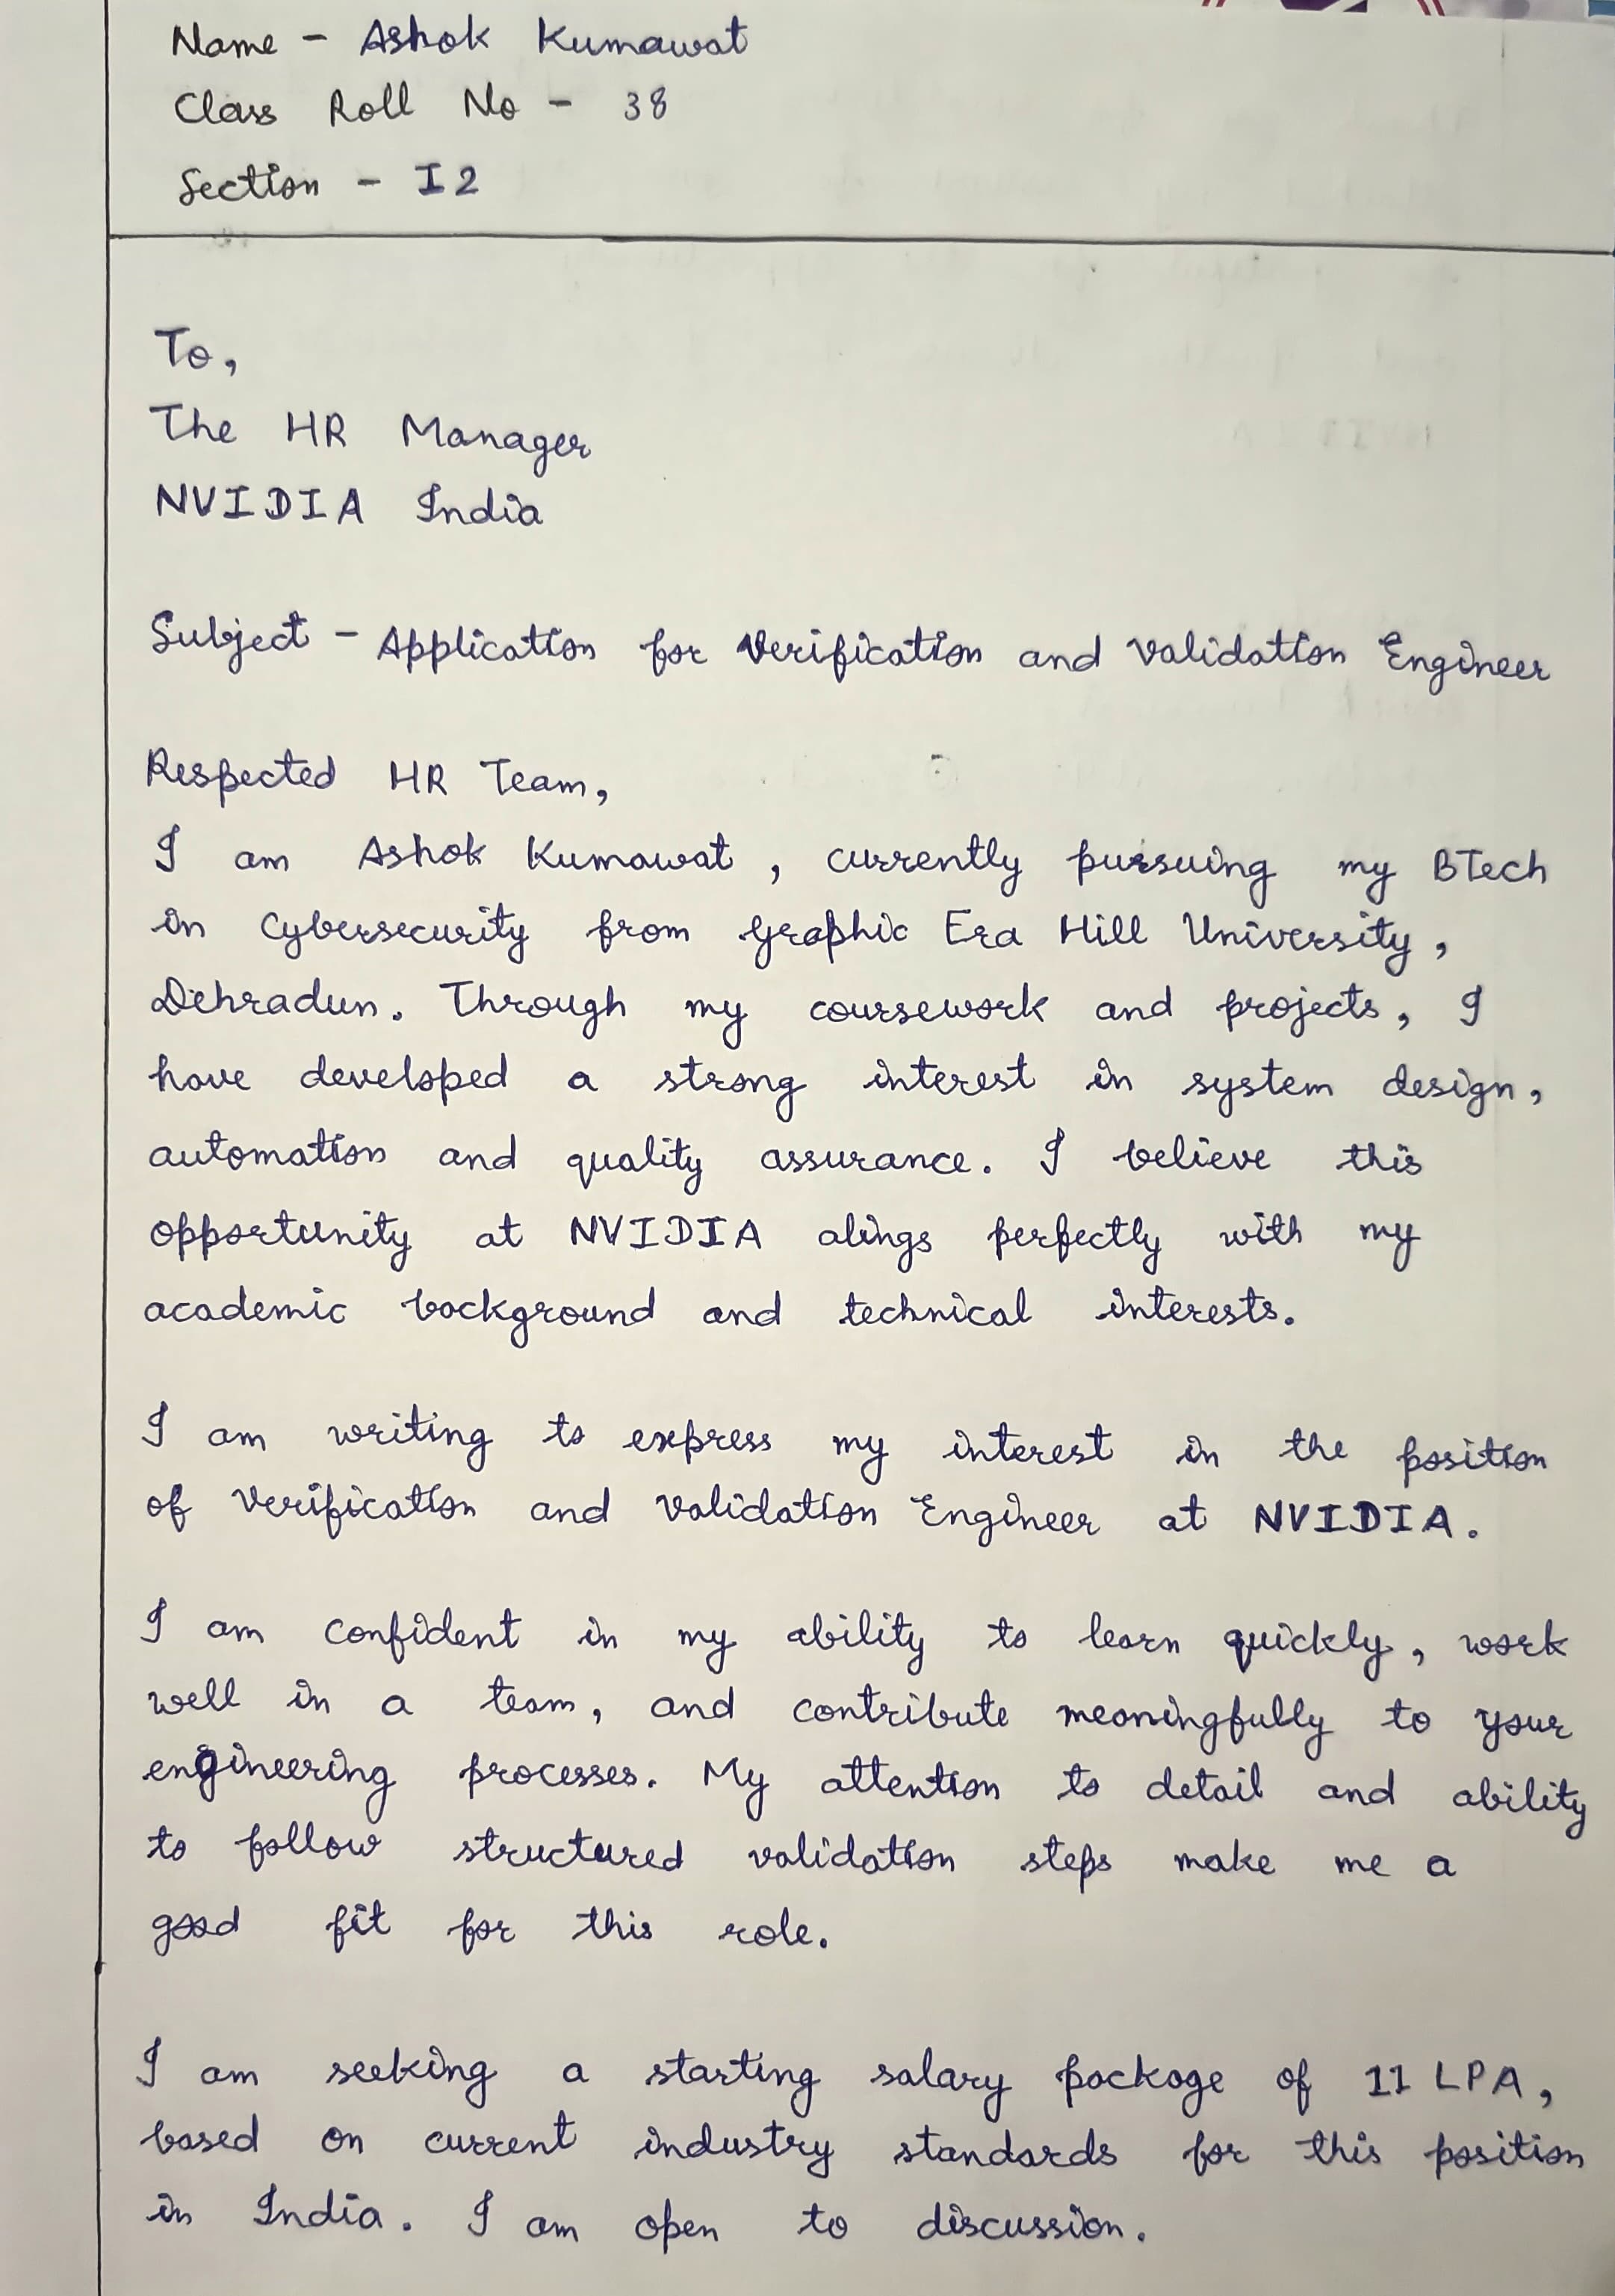 Name - Ashok Kumawat
Class Roll No - 38
Section - I2
To,
The HR Manager
NVIDIA India
Subject - Application for Verification and Validation Engineer
Respected HR Team,
I am Ashok Kumawat, currently pursuing my BTech
in Cybersecurity from Graphic Era Hill University,
Dehradun. Through my coursework and projects, I
have developed a strong interest in system design,
automation and quality assurance. I believe this
opportunity at NVIDIA alings perfectly with my
academic background and technical interests.
I am writing to express my interest in the position
of Verification and Validation Engineer at NVIDIA.
I am confident in my ability to learn quickly, work
well in a team, and contribute meaningfully to your
engineering processes. My attention to detail and ability
to follow structured validation steps make me a
good fit for this role.
I am seeking a starting salary package of 11 LPA,
based on current industry standards for this position
in India. I am open to discussion.